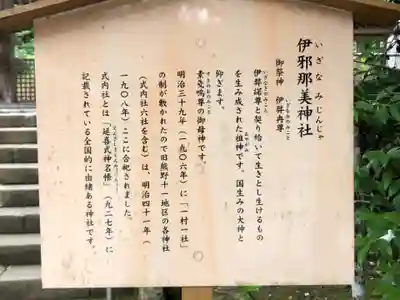 いざなみじんじゃ
伊邪那美神社
御祭神 伊弉冉尊
いざなみのみこと
いざなぎのみこと
伊弉諾尊と契り給いて生きとし生けるもの
おやがみ
を生み成された祖神です。国生みの大神と
仰ぎます。
すさのおのみこと
素戔嗚尊の御母神です。
明治三十九年(一九〇六年)に「一村一社」
の制が敷かれたので旧熊野十一地区の各神社
(式内社六社を含む)は、明治四十一年(
一九〇八年)ここに合祀されました。
えんぎしきじんみょうちょう
式内社とは「延喜式神名帳」(九二七年)に
記載されている全国的に由緒ある神社です。